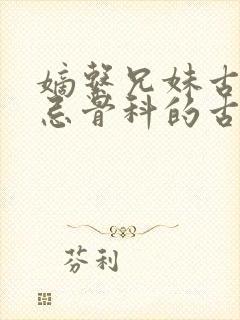 嫡
兄妹古
忌骨科的古
芬利